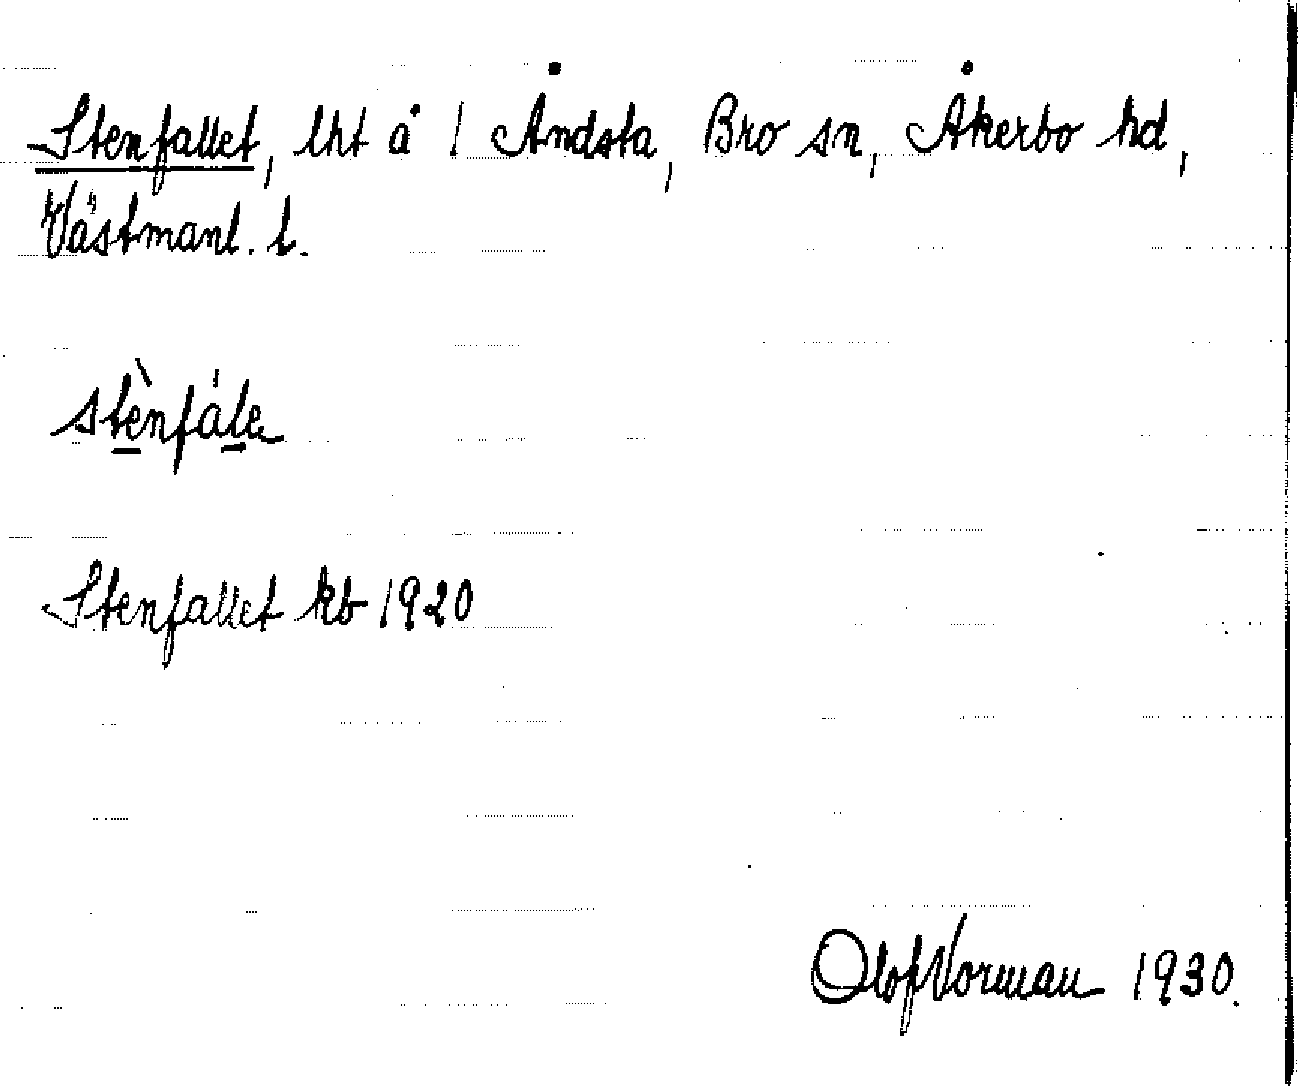 Stenfallet, lht å 1 Åndsta, Bro sn, Åkerbo hd,
Västmanl. l.
stènfále
Stenfallet kb 1920
Olof Norman 1930.